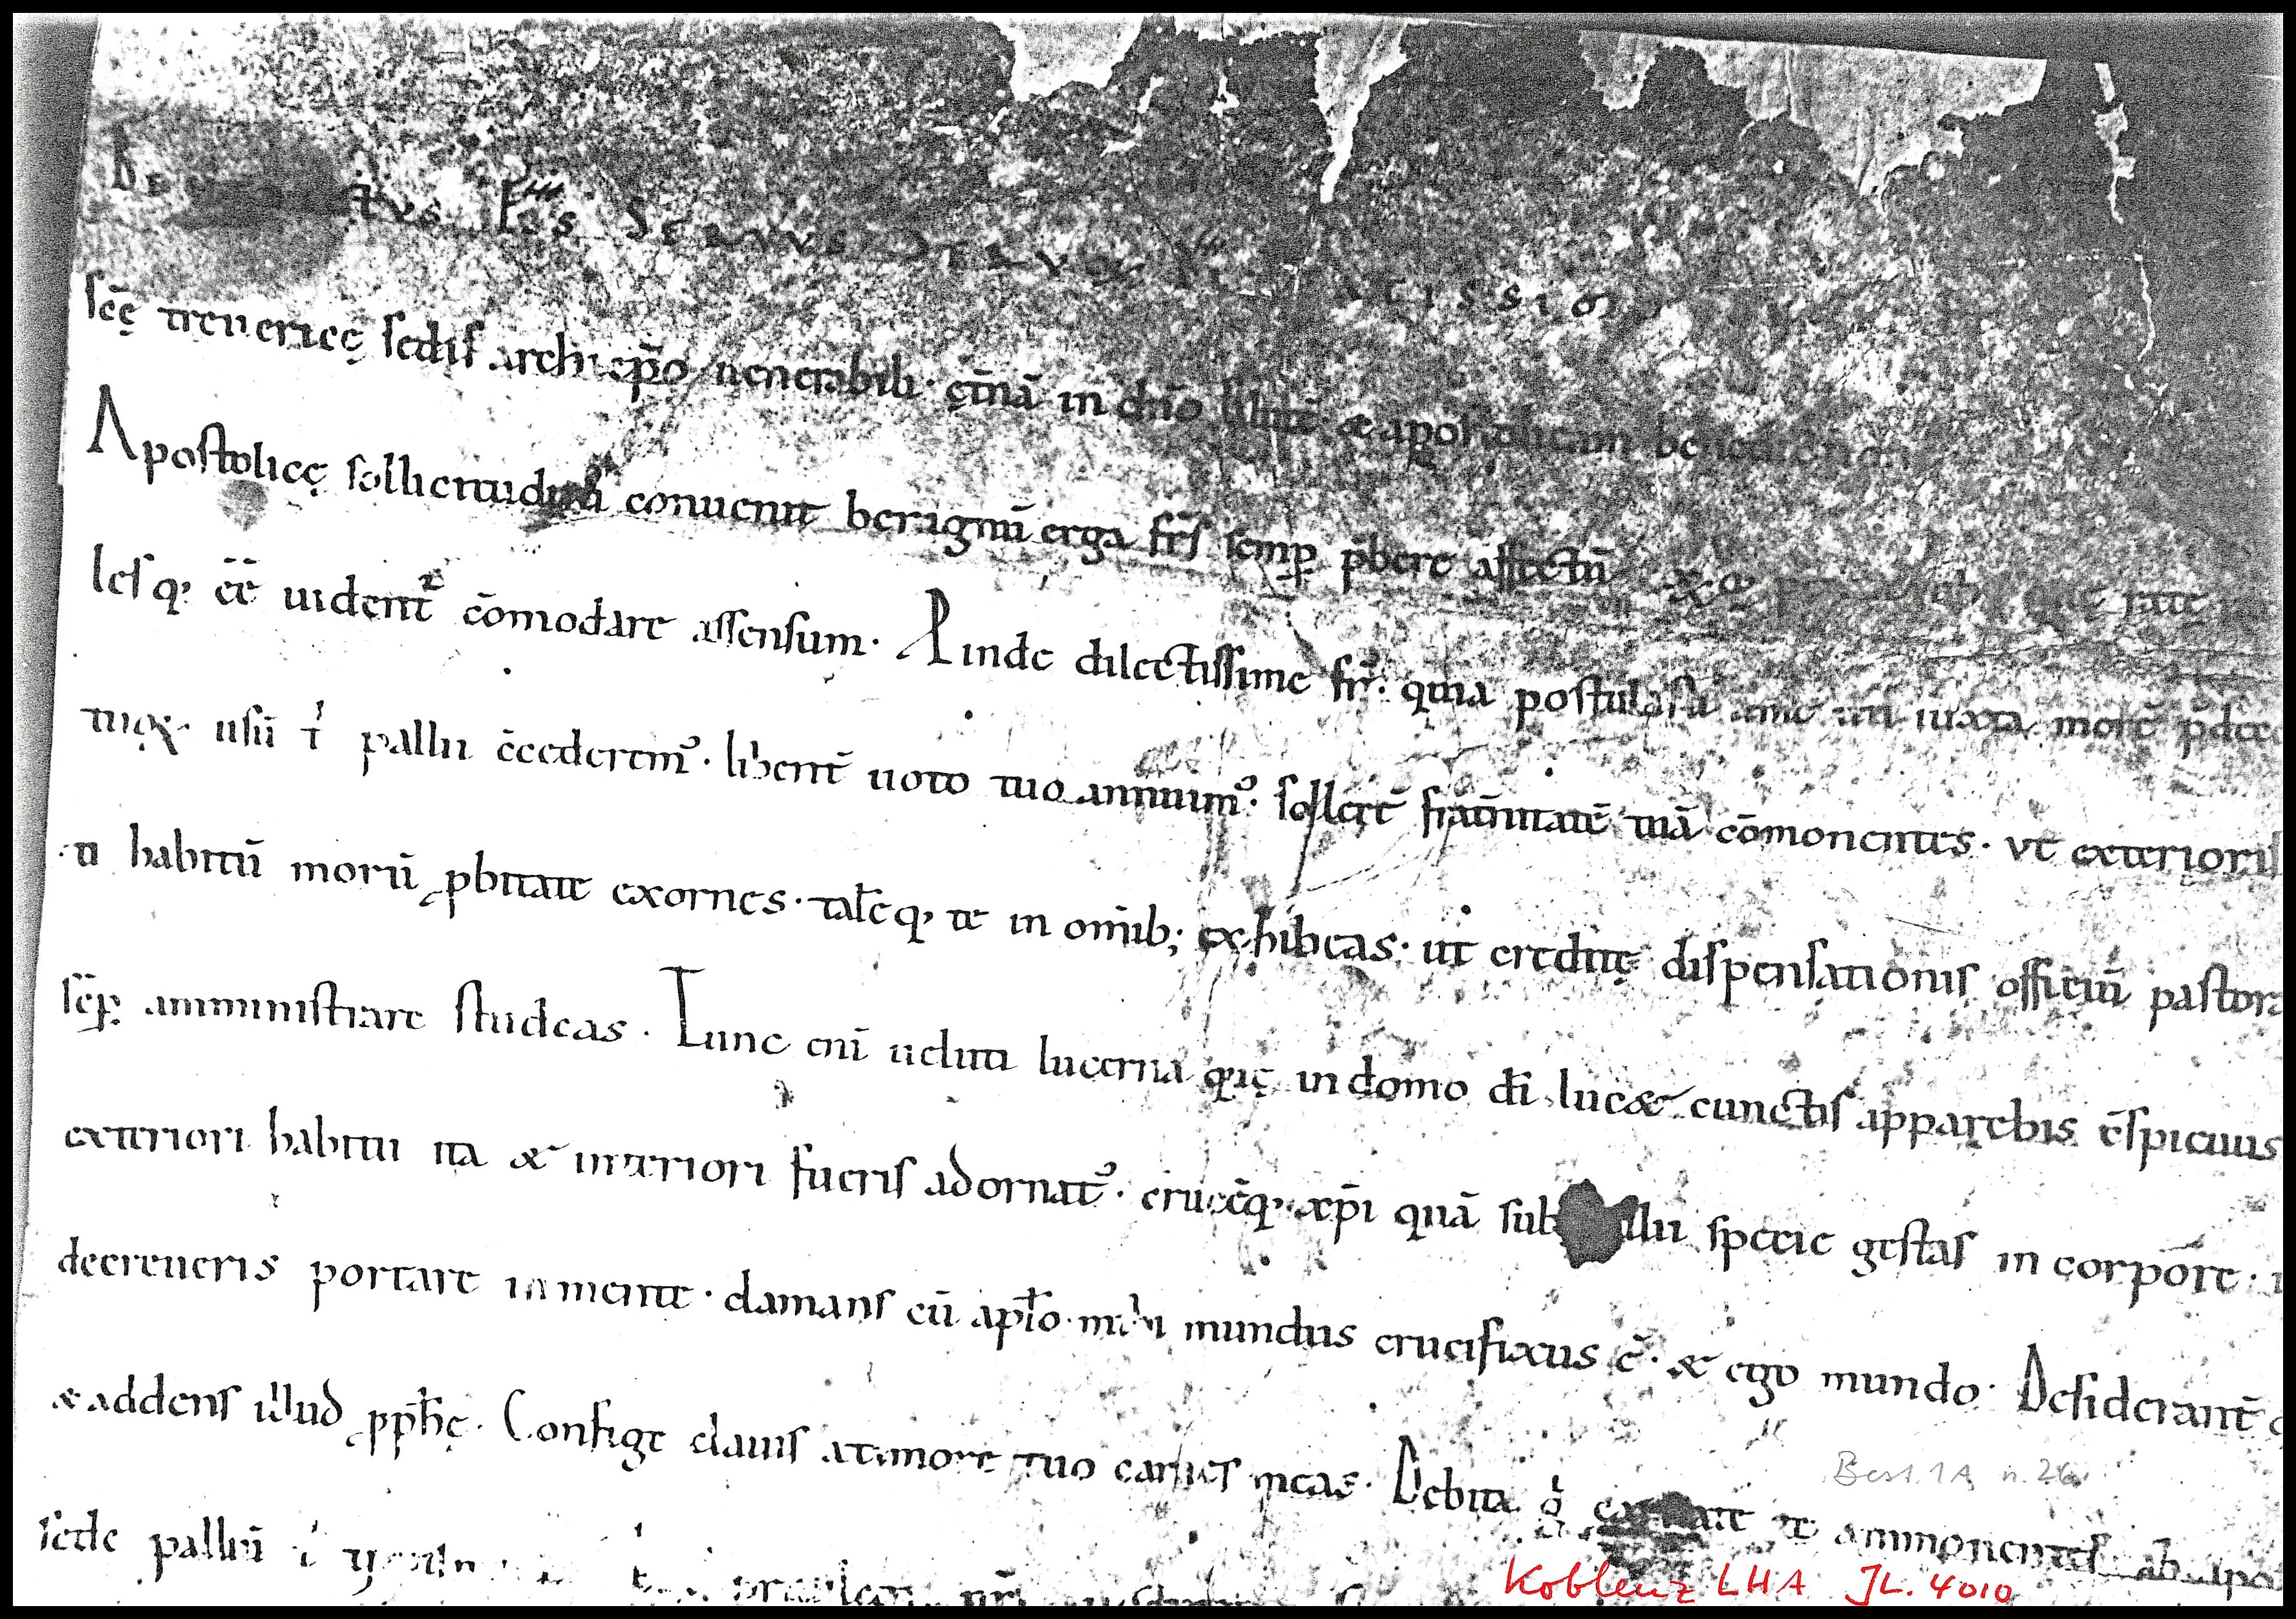 tus ep̄s servus servoꝝ
sc̄ę treuericę sedis archiep̄o uenerabili · et̄nā in dn̄o salutē & apostolicam benedictionē
Apostolicę sollicitudini conuenit benignū erga frēs semp̱ p̄bere affectū
lesq; ēē uident᷑ cōmodare assensum · Ꝓinde dilectissime fr̄ · quia postulasti a me uti iuxta morē p̄dec
tuoꝝ · usū tⁱ pallii c̄cederem᷒ · libent̄ uoto tuo annuim᷒ · sollert̄ frat̄nitatē tuā cōmonentes · vt exterioris
habitū morū ꝓbitate exornes · talēq; te in om̄ib; exhibeas · ut creditę dispensationis officiū pastora
sēp̱ amministrare studeas · Tunc enī ueluti lucerna quę in domo dī lucet cunctis apparebis c̄spicuus
exteriori habitu ita & interiori fueris adornat᷒ · crucēq; xp̄i quā sub llii specie gestas in corpore ·
decreueris portare in mente · clamans cū apl̄o · mihi mundus crucifixus ē · & ego mundo · Desiderant̄
& addens illud ꝓph̄ę · Confige clauis a timore tuo carnes meas · Debita gͥ te ammonentes ab apo
sede palliū
Best. 1A n. 26
Koblenz LHA JL. 4010